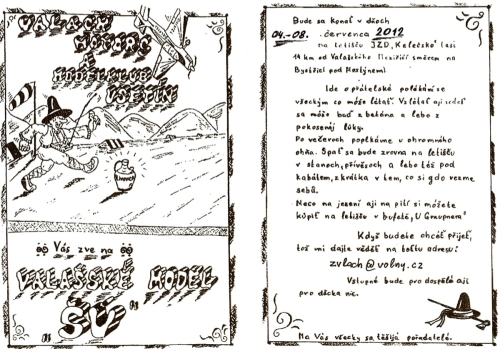 VALACH
A
MODELKLUB
VSETÍN
Vás zve na
VALAŠSKÉ MODEL
"ŠÚ"
Bude sa konať v dňoch
04.-08. červenca 2012
na letišťu JZD „Kelečsko" (asi
11 km od Valašského Meziříčí směrem na
Bystřici pod Hostýnem)
Ide o přátelské polétání se
všeckým co može létať. Vzlétať aji sedať
sa může buď z betóna a lebo z
pokosenéj lúky.
Po večeroch popíkáme u ohromného
ohňa. Spať sa bude zrovna na letišťu
v stanoch, přívěsoch a lebo též pod
kabátem, zkrátka v tem, co si gdo vezme
sebú.
Neco na jezení aji na pití si môžete
kúpiť na letišťu v bufetě „U Graupnera"
Když budete chcéť přijet,
tož mi dajte vědět na toťtu adresu:
zvlach@volny.cz
Vstupné bude pro dospělé aji
pro děcka nic.
Na Vás všecky sa těšíjá pořadatelé.